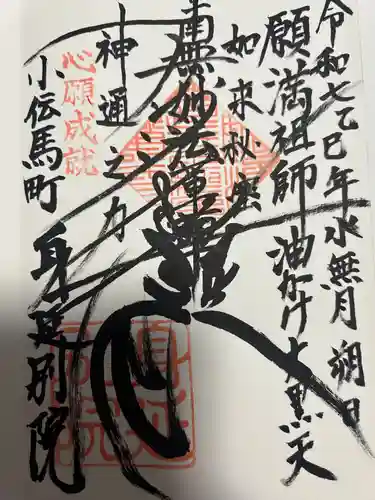 令和七乙巳年水無月朔日
願満祖師 油かけ大黒天
如来秘密
南無妙法蓮華経
神通之力
心願成就
小伝馬町
身延別院